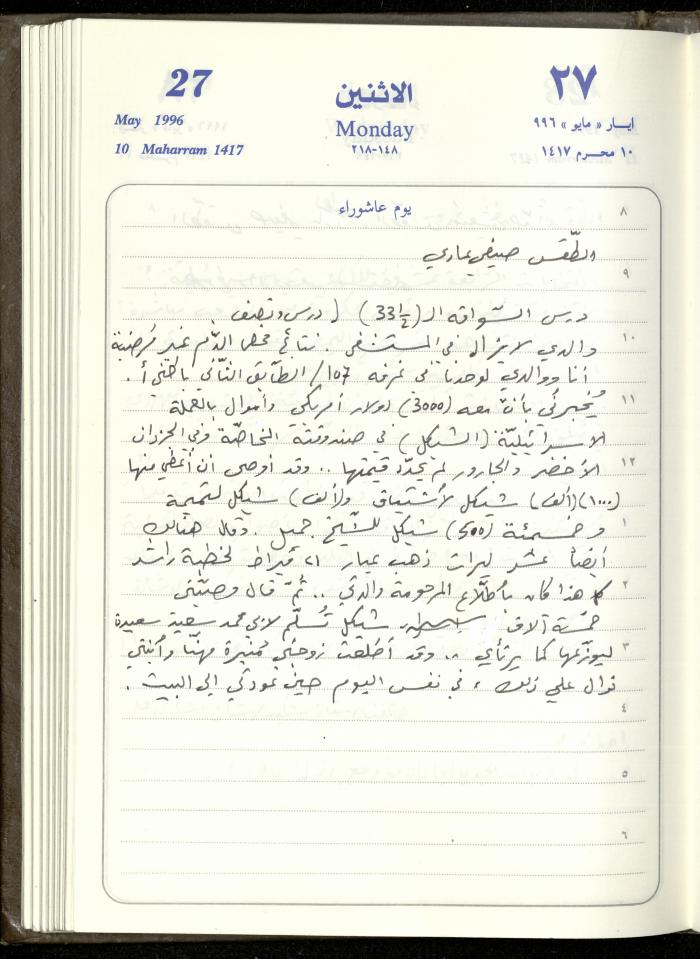 27
٢٧
الاثنين
May 1996
Monday
ايار « مايو » ٩٩٦
10 Maharram 1417
١٤٨-٢١٨
١٠ محرم ١٤١٧
٨
يوم عاشوراء
الطّقس صيفي عادي
٩
درس السّواقه الـ (33½) / درس ونصف .
١٠
والدي لا يزال في المستشفى . نتائج فحص الدّم غير مُرضية
أنا ووالدي لوحدنا في غرفه 107/ الطّابق الثّاني
١١
يُخبرني بأنّ معه (3000) دولار أمريكي وأموال بالعملة
الاسرائيليّة (الشيكل) في صندوقته الخاصّة وفي الخزان
١٢
الأخضر والجارور لم يحدّد قيمتها .. وقد أوصى أن أعطي منها
(١٠٠٠) (ألف) شيكل لأشتياق و(ألف) شيكل لتميمة
١
و خمسمئة (500) شيكل للشّيخ جميل . وقال هنالك
أيضاً عشر ليرات ذهب عيار ٢١ قيراط لخطبة رائد
٢
هذا كان بأطلّاع المرحومة والدتي .. ثمّ قال وصيّتي
خمسة آلاف شيكل تُسلّم لابي محمد سعيد سعيدة
٣
ليوزّعها كما يرتأي .. وقد أطلعت زوجتي مُنيرة مهنّا وأبنتي
نوال علي ذلك ، في نفس اليوم حين عودتي الى البيت .
٤
٥
٦